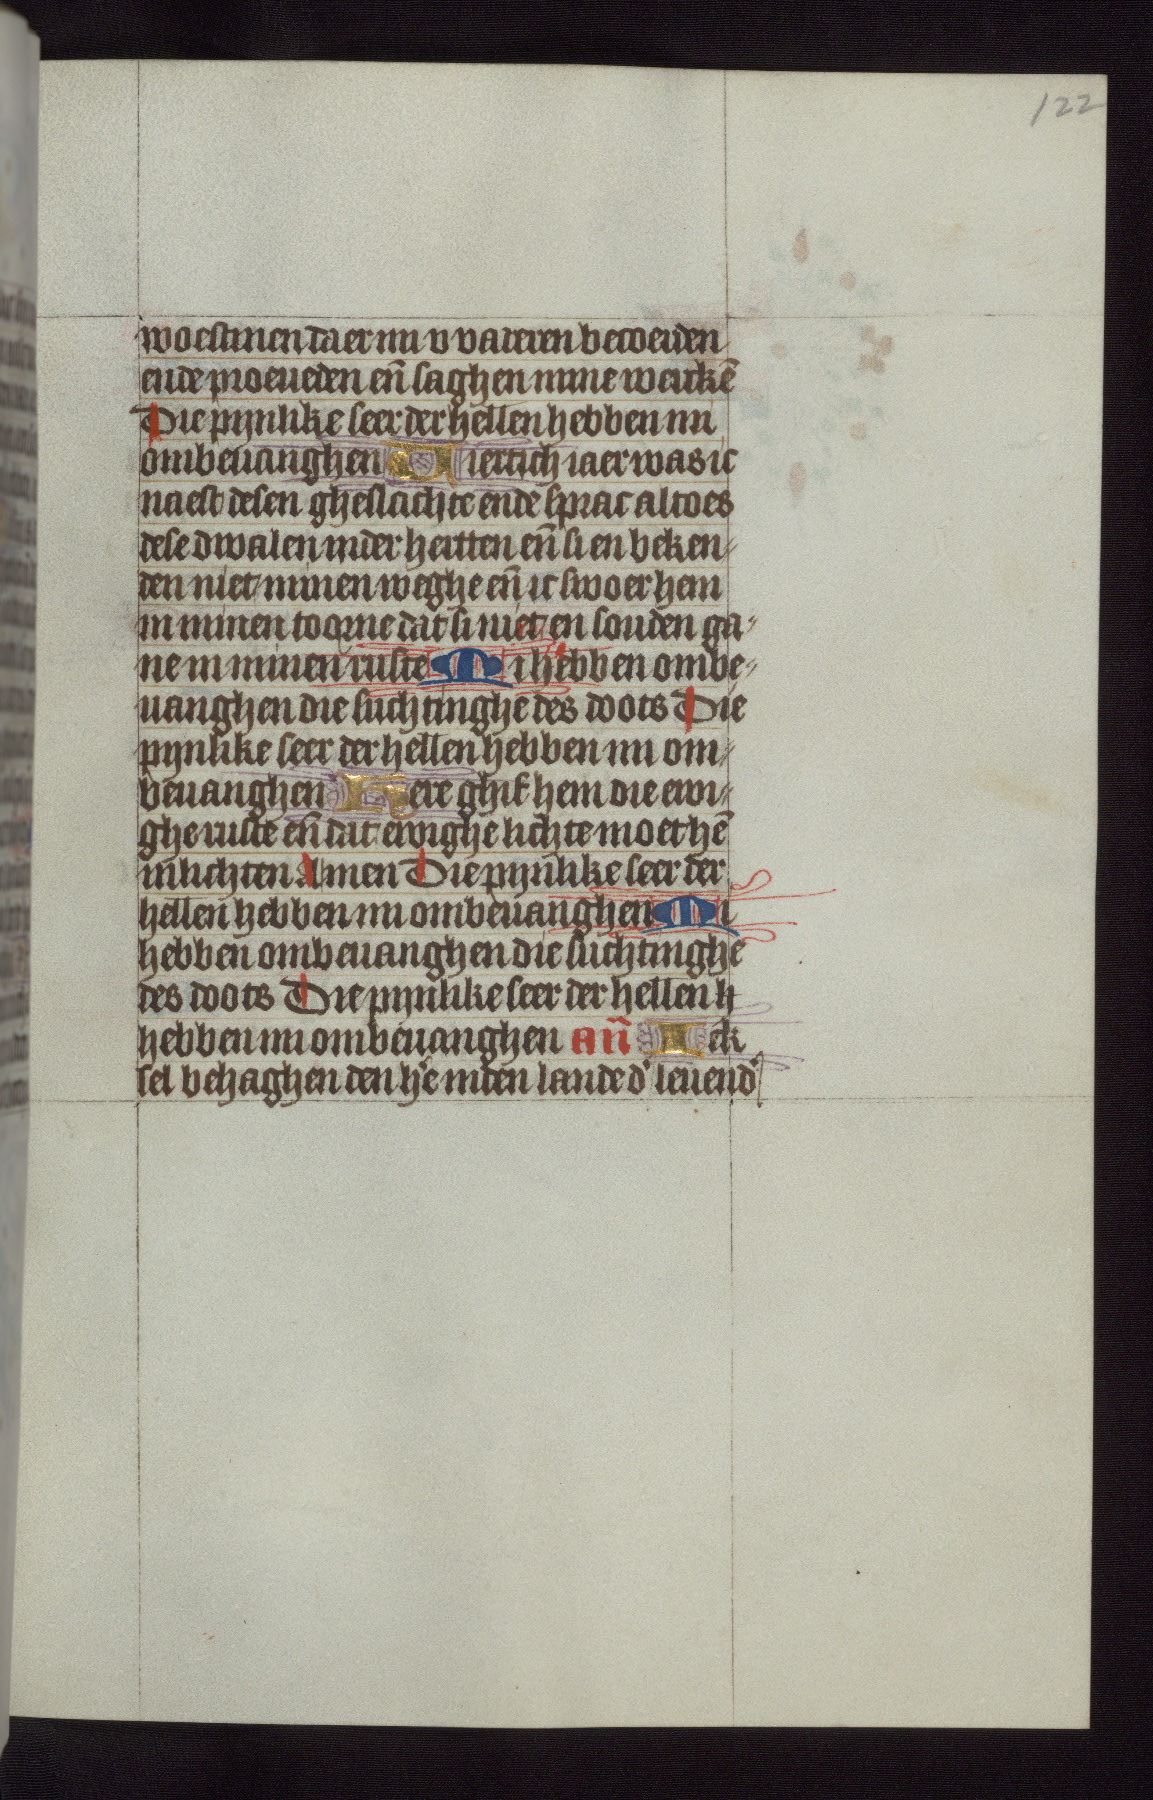 122
woestinen daer mi v vaderen becoerden
ende proeueden en̄ saghen mine wercke̅
Die pijnlike seer der hellen hebben mi
ombeuanghen Viertich iaer was ic
naest desen gheslachte ende sprac altoes
dese dwalen mider herten en̄ si en beken⸗
den niet minen weghe en̄ ic swoer hem
in minen toorne dat si niet en souden ga⸗
ne in minen ruste Mi hebben ombe⸗
uanghen die suchtinghe des doots Die
pijnlike seer der hellen hebben mi om⸗
beuanghen Here ghif hem die ewi⸗
ghe ruste en̄ dat ewighe lichte moet he̅
inlichten Amen Die pijnlike seer der
hellen hebben mi ombeuanghen Mi
hebben ombeuanghen die suchtinghe
des doots Die pijnlike seer der hellen h
hebben mi ombeuanghen an̄ Ick
sel behaghen den he̅ inden lande d' leuend'